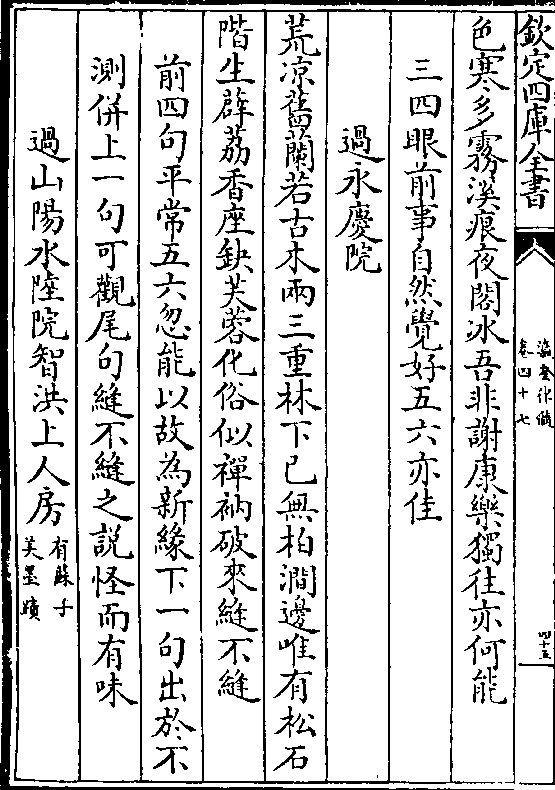 欽定四庫全書
瀛奎律髓
卷四十七
四十五
色寒多霧溪痕夜閣冰吾非謝康樂獨往亦何能
三四眼前事自然覺好五六亦佳
過永慶院
荒凉舊蘭若古木兩三重林下已無柏澗邊唯有松石
階生薜荔香座鈌芙蓉化俗似禪衲破來縫不縫
前四句平常五六忽能以故為新緣下一句出於不
測併上一句可觀尾句縫不縫之説怪而有味
過山陽水陸院智洪上人房有蘇子
美墨蹟